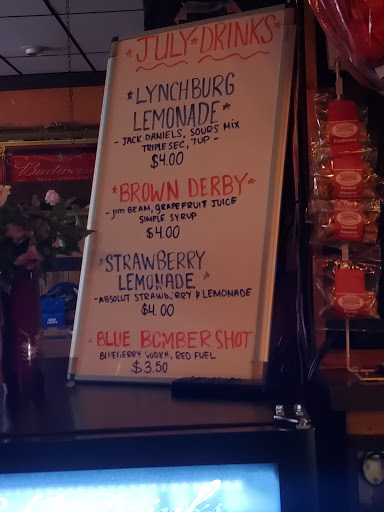 JULY DRINKS
LYNCHBURG
LEMONADE
- JACK DANIELS, SOURS MIX
TRIPLE SEC, 7UP -
$4.00
BROWN DERBY
- JIM BEAM, GRAPEFRUIT JUICE
SIMPLE SYRUP
$4.00
STRAWBERRY
LEMONADE
- ABSOLUT STRAWB RRY & LEMONADE
$4.00
- BLUE BOMBER SHOT
BLUEBERRY VODKA, RED FUEL
$3.50
Budweiser